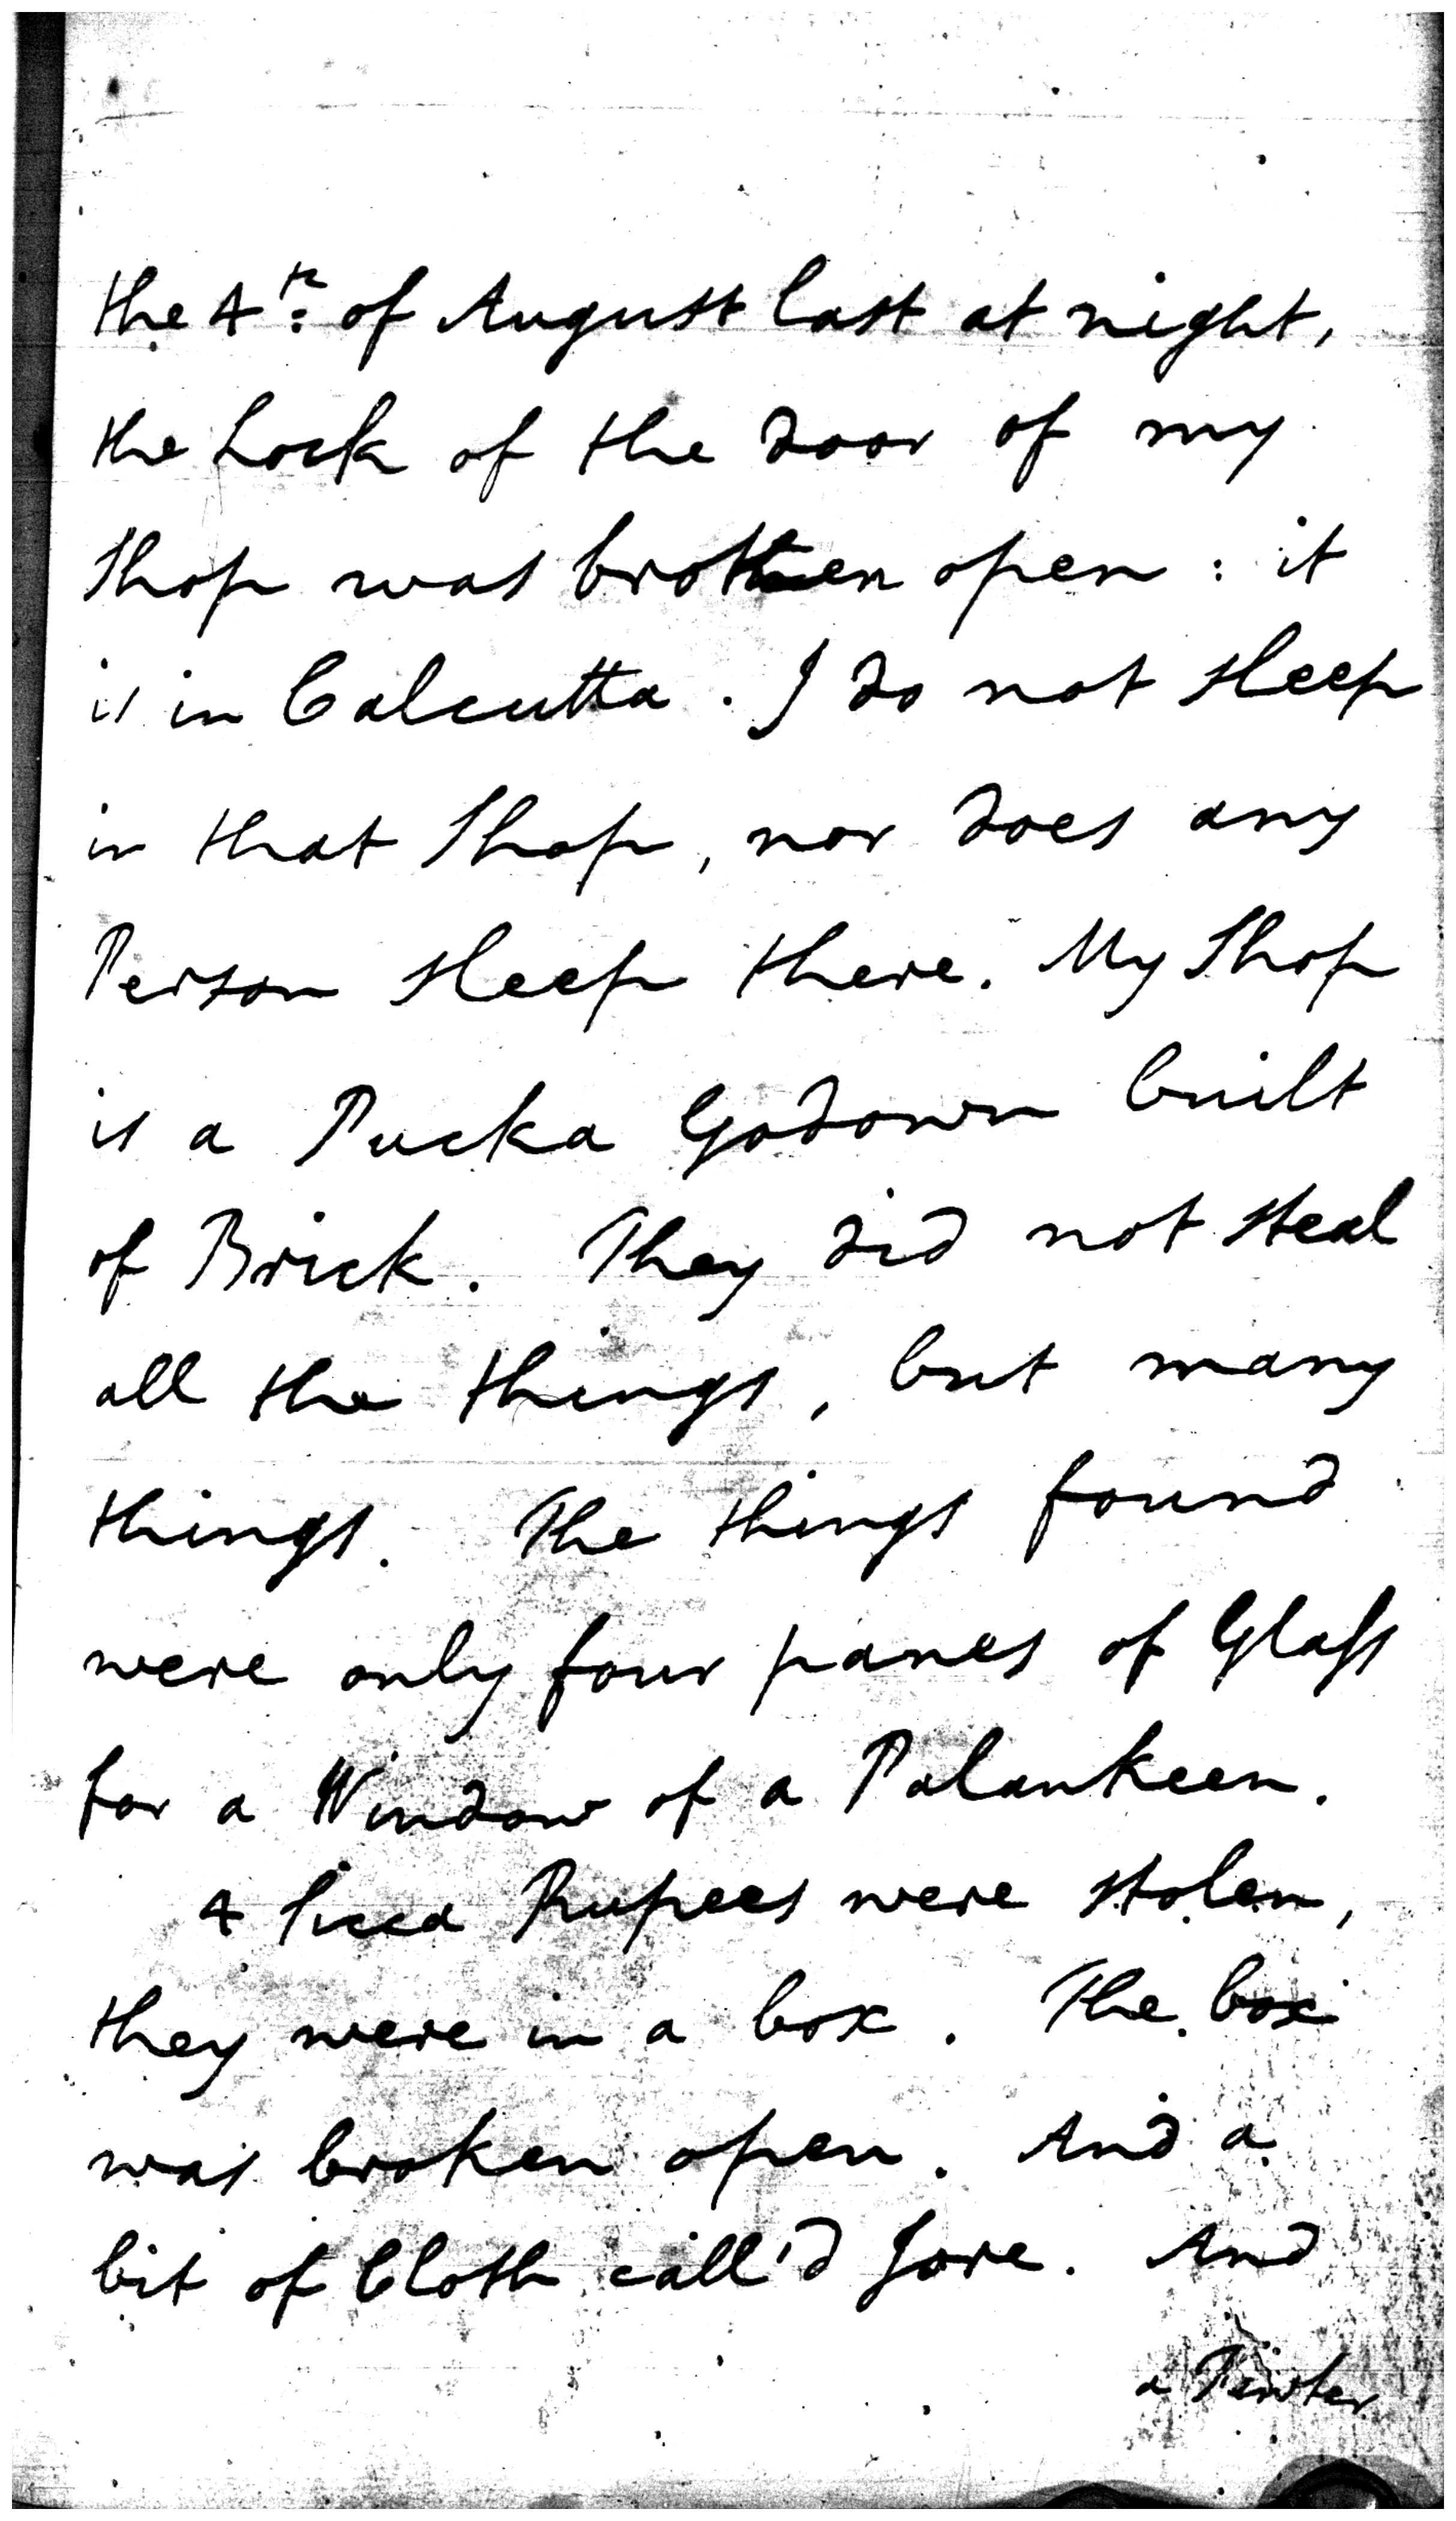 the 4th: of August last at night,
the Lock of the door of my
Shop was broken open : it
is in Calcutta . I do not sleep
in that Shop, nor does any
Person sleep there. My Shop
is a Pucka Godown built
of Brick. They did not steal
all the things, but many
things. The things found
were only four panes of Glass
for a Window of a Palankeen.
4 Sicca Rupees were stolen,
they were in a box . The box
was broken open. And a
bit of Cloth call'd Jore. And
a Pewter